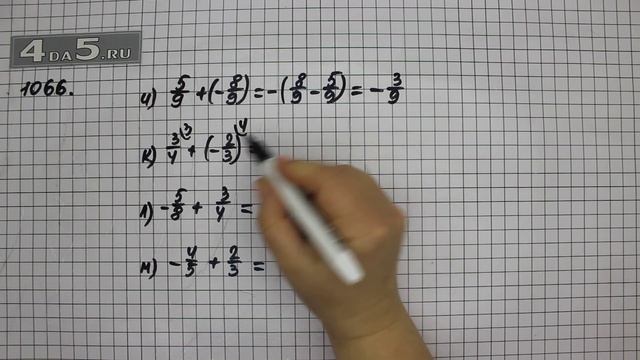 4DA5.RU
1066.
и) 5/9 + (-8/9) = -(8/9 - 5/9) = -3/9
к) 3/4 ³ + (-2/3) ⁴ =
л) -5/8 + 3/4 =
м) -4/5 + 2/3 =